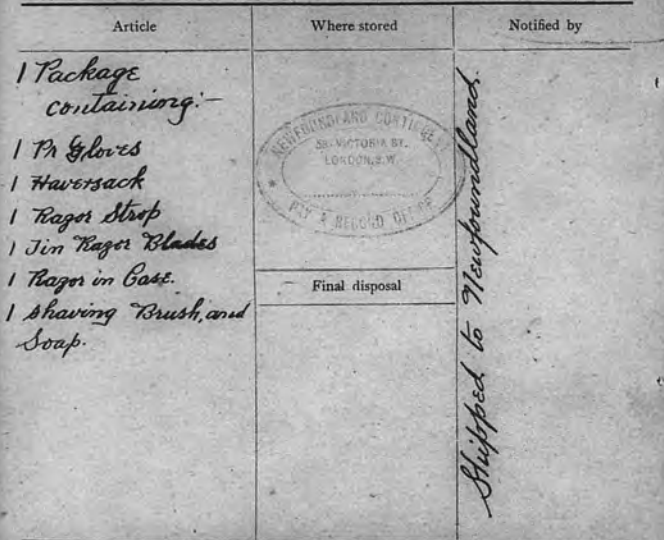 Article
Where stored
Notified by
1 Package
containing:-
1 Pr Gloves
1 Haversack
1 Razor Strop
1 Tin Razor Blades
1 Razor in Case.
1 Shaving Brush, and
Soap.
NEWFOUNDLAND CONTINGENT
58, VICTORIA ST.
LONDON, S.W.
PAY & RECORD OFFICE
Final disposal
Shipped to Newfoundland.